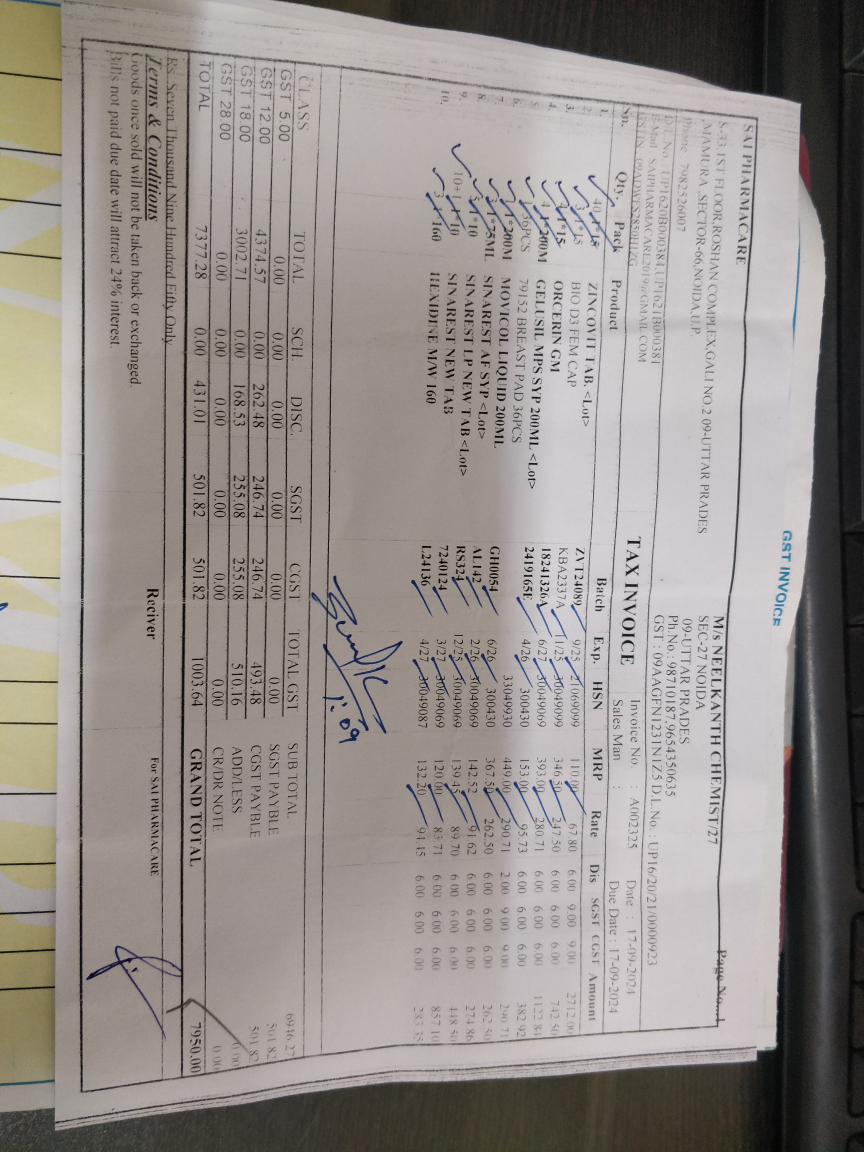 GST INVOICE
Page No...1
SAI PHARMACARE
S-33 1ST FLOOR,ROSHAN COMPLEX,GALI NO.2 09-UTTAR PRADES
MAMURA ,SECTOR-66,NOIDA,U.P.
Phone 7982526007
D.L.No. UP1620B000384,UP1621B000381
E-Mail SAIPHARMACARE2019@GMAIL.COM
GSTIN 09ADWFS2850H1ZG
M/s NEELKANTH CHEMIST/27
SEC-27 NOIDA
09-UTTAR PRADES
Ph.No.: 98710187,9654350635
GST : 09AAGFN1231N1Z5 D.L.No. : UP16/20/21/0000923
TAX INVOICE
Invoice No. : A002325 Date : 17-09-2024
Sales Man : Due Date : 17-09-2024
Sn. Qty. Pack Product Batch Exp. HSN MRP Rate Dis SGST CGST Amount
1. 40 1*15 ZINCOVIT TAB. <Lot> ZVT24089 9/25 21069099 110.00 67.80 6.00 9.00 9.00 2712.00
2. 3 1*15 BIO D3 FEM CAP KBA2337A 11/25 30049099 346.50 247.50 6.00 6.00 6.00 742.50
3. 4 1*15 ORCERIN GM 18241326A 6/27 30049069 393.00 280.71 6.00 6.00 6.00 1122.84
4. 4 1*200M GELUSIL MPS SYP 200ML <Lot> 2419165E 4/26 300430 153.00 95.73 6.00 6.00 6.00 382.92
5. 1 36PCS 79152 BREAST PAD 36PCS 33049930 449.00 290.71 2.00 9.00 9.00 290.71
6. 1 1*200M MOVICOL LIQUID 200ML GH0054 6/26 300430 367.50 262.50 6.00 6.00 6.00 262.50
7. 3 1*75ML SINAREST AF SYP <Lot> AL142 2/26 30049069 142.52 91.62 6.00 6.00 6.00 274.86
8. 5 1*10 SINAREST LP NEW TAB <Lot> RS324 12/25 30049069 139.45 89.70 6.00 6.00 6.00 448.50
9. 10+1 1*10 SINAREST NEW TAB 7240124 3/27 30049069 120.00 83.71 6.00 6.00 6.00 857.10
10. 3 1*160 HEXIDINE M/W 160 L24136 4/27 30049087 132.20 94.45 6.00 6.00 6.00 283.35
CLASS TOTAL SCH. DISC. SGST CGST TOTAL GST
GST 5.00 0.00 0.00 0.00 0.00 0.00 0.00
GST 12.00 4374.57 0.00 262.48 246.74 246.74 493.48
GST 18.00 3002.71 0.00 168.53 255.08 255.08 510.16
GST 28.00 0.00 0.00 0.00 0.00 0.00 0.00
TOTAL 7377.28 0.00 431.01 501.82 501.82 1003.64
SUB TOTAL 6946.27
SGST PAYBLE 501.82
CGST PAYBLE 501.82
ADD/LESS 0.00
CR/DR NOTE 0.00
GRAND TOTAL 7950.00
Rs. Seven Thousand Nine Hundred Fifty Only
Terms & Conditions
Goods once sold will not be taken back or exchanged.
Bills not paid due date will attract 24% interest.
Reciver
For SAI PHARMACARE